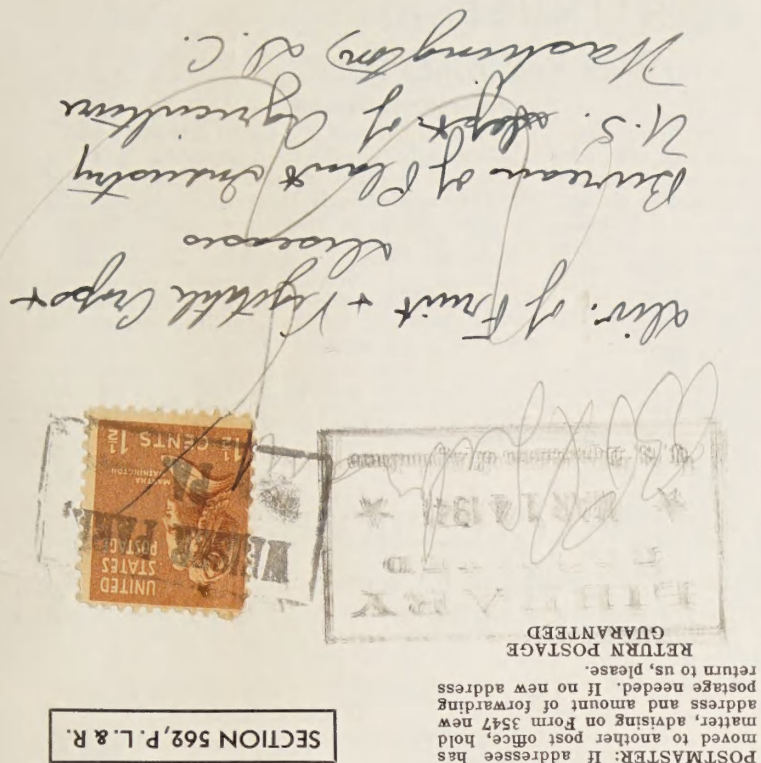 POSTMASTER: If addressee has
moved to another post office, hold
matter, advising on Form 3547 new
address and amount of forwarding
postage needed. If no new address
return to us, please.
RETURN POSTAGE
GUARANTEED
SECTION 562, P. L. & R.
LIBRARY
★ MAR 14 194 ★
U.S. Department of Agriculture
UNITED
STATES
POSTAGE
MARTHA
WASHINGTON
1½ CENTS 1½
WEISER PARK,
PA.
Div. of Fruit + Vegetable Crops +
Diseases
Bureau of Plant Industry
U.S. Dept of Agriculture
Washington D.C.